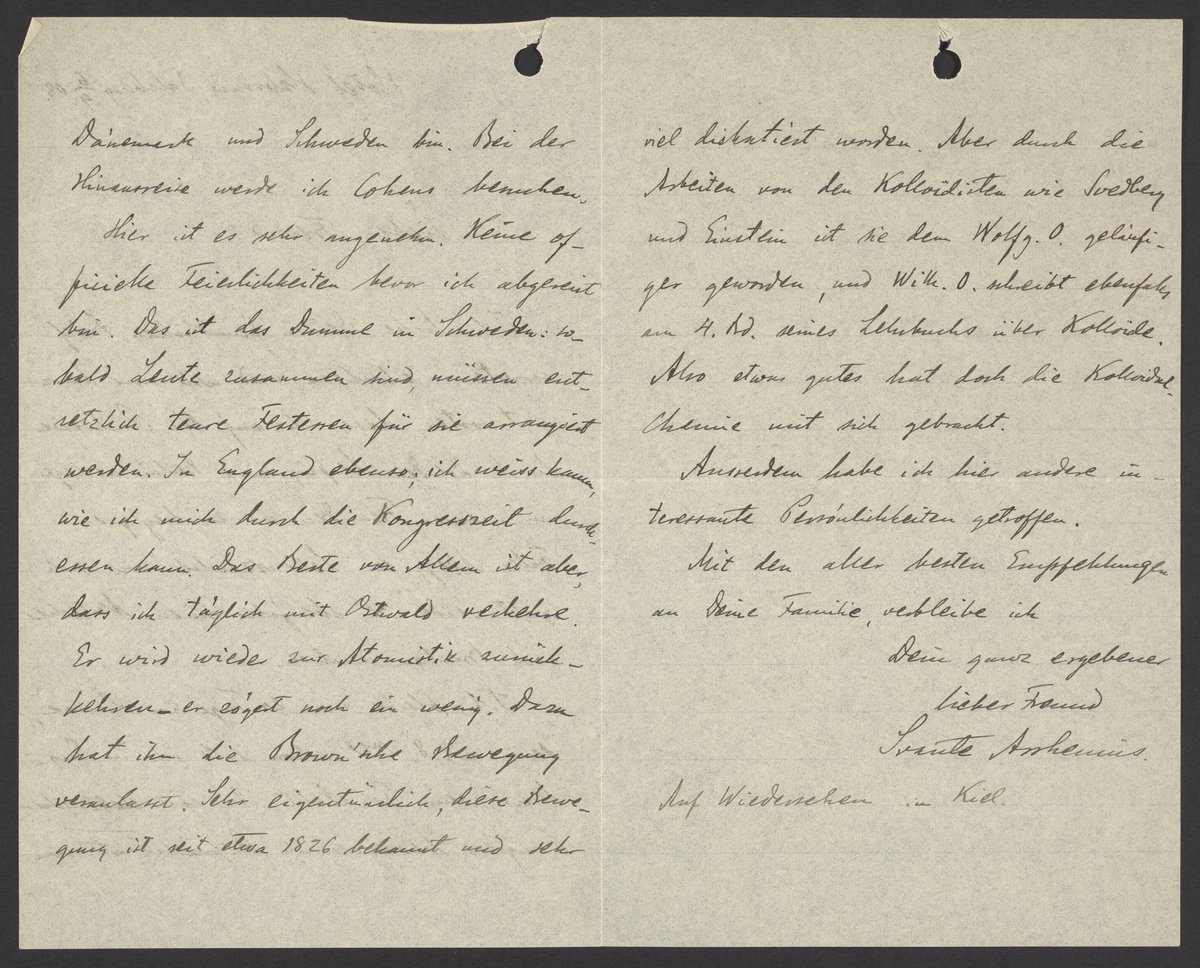 Dänemark und Schweden bin. Bei der
Hinausreise werde ich Cohens besuchen.
Hier ist es sehr angenehm. Keine of-
ficielle Feierlichkeiten bevor ich abgereist
bin. Das ist das Dumme in Schweden: so-
bald Leute zusammen sind, müssen ent-
setzlich teure Festessen für sie arrangiert
werden. In England ebenso; ich weiss kaum,
wie ich mich durch die Kongresszeit durch-
essen kann. Das Beste von Allem ist aber,
dass ich täglich mit Ostwald verkehre.
Er wird wieder zur Atomistik zurück-
kehren – er zögert noch ein wenig. Dazu
hat ihn die Brown'sche Bewegung
veranlasst. Sehr eigentümlich, diese Bewe-
gung ist seit etwa 1826 bekannt und sehr
viel diskutiert worden. Aber durch die
Arbeiten von den Kolloidisten wie Svedberg
und Einstein ist sie dem Wolfg. O. geläufi-
ger geworden, und Wilh. O. schreibt ebenfalls
am 4. Bd. seines Lehrbuchs über Kolloide.
Also etwas gutes hat doch die Kolloidal-
Chemie mit sich gebracht.
Ausserdem habe ich hier andere in-
teressante Persönlichkeiten getroffen.
Mit den aller besten Empfehlungen
an Deine Familie, verbleibe ich
Dein ganz ergebener
lieber Freund
Svante Arrhenius.
Auf Wiedersehen in Kiel.